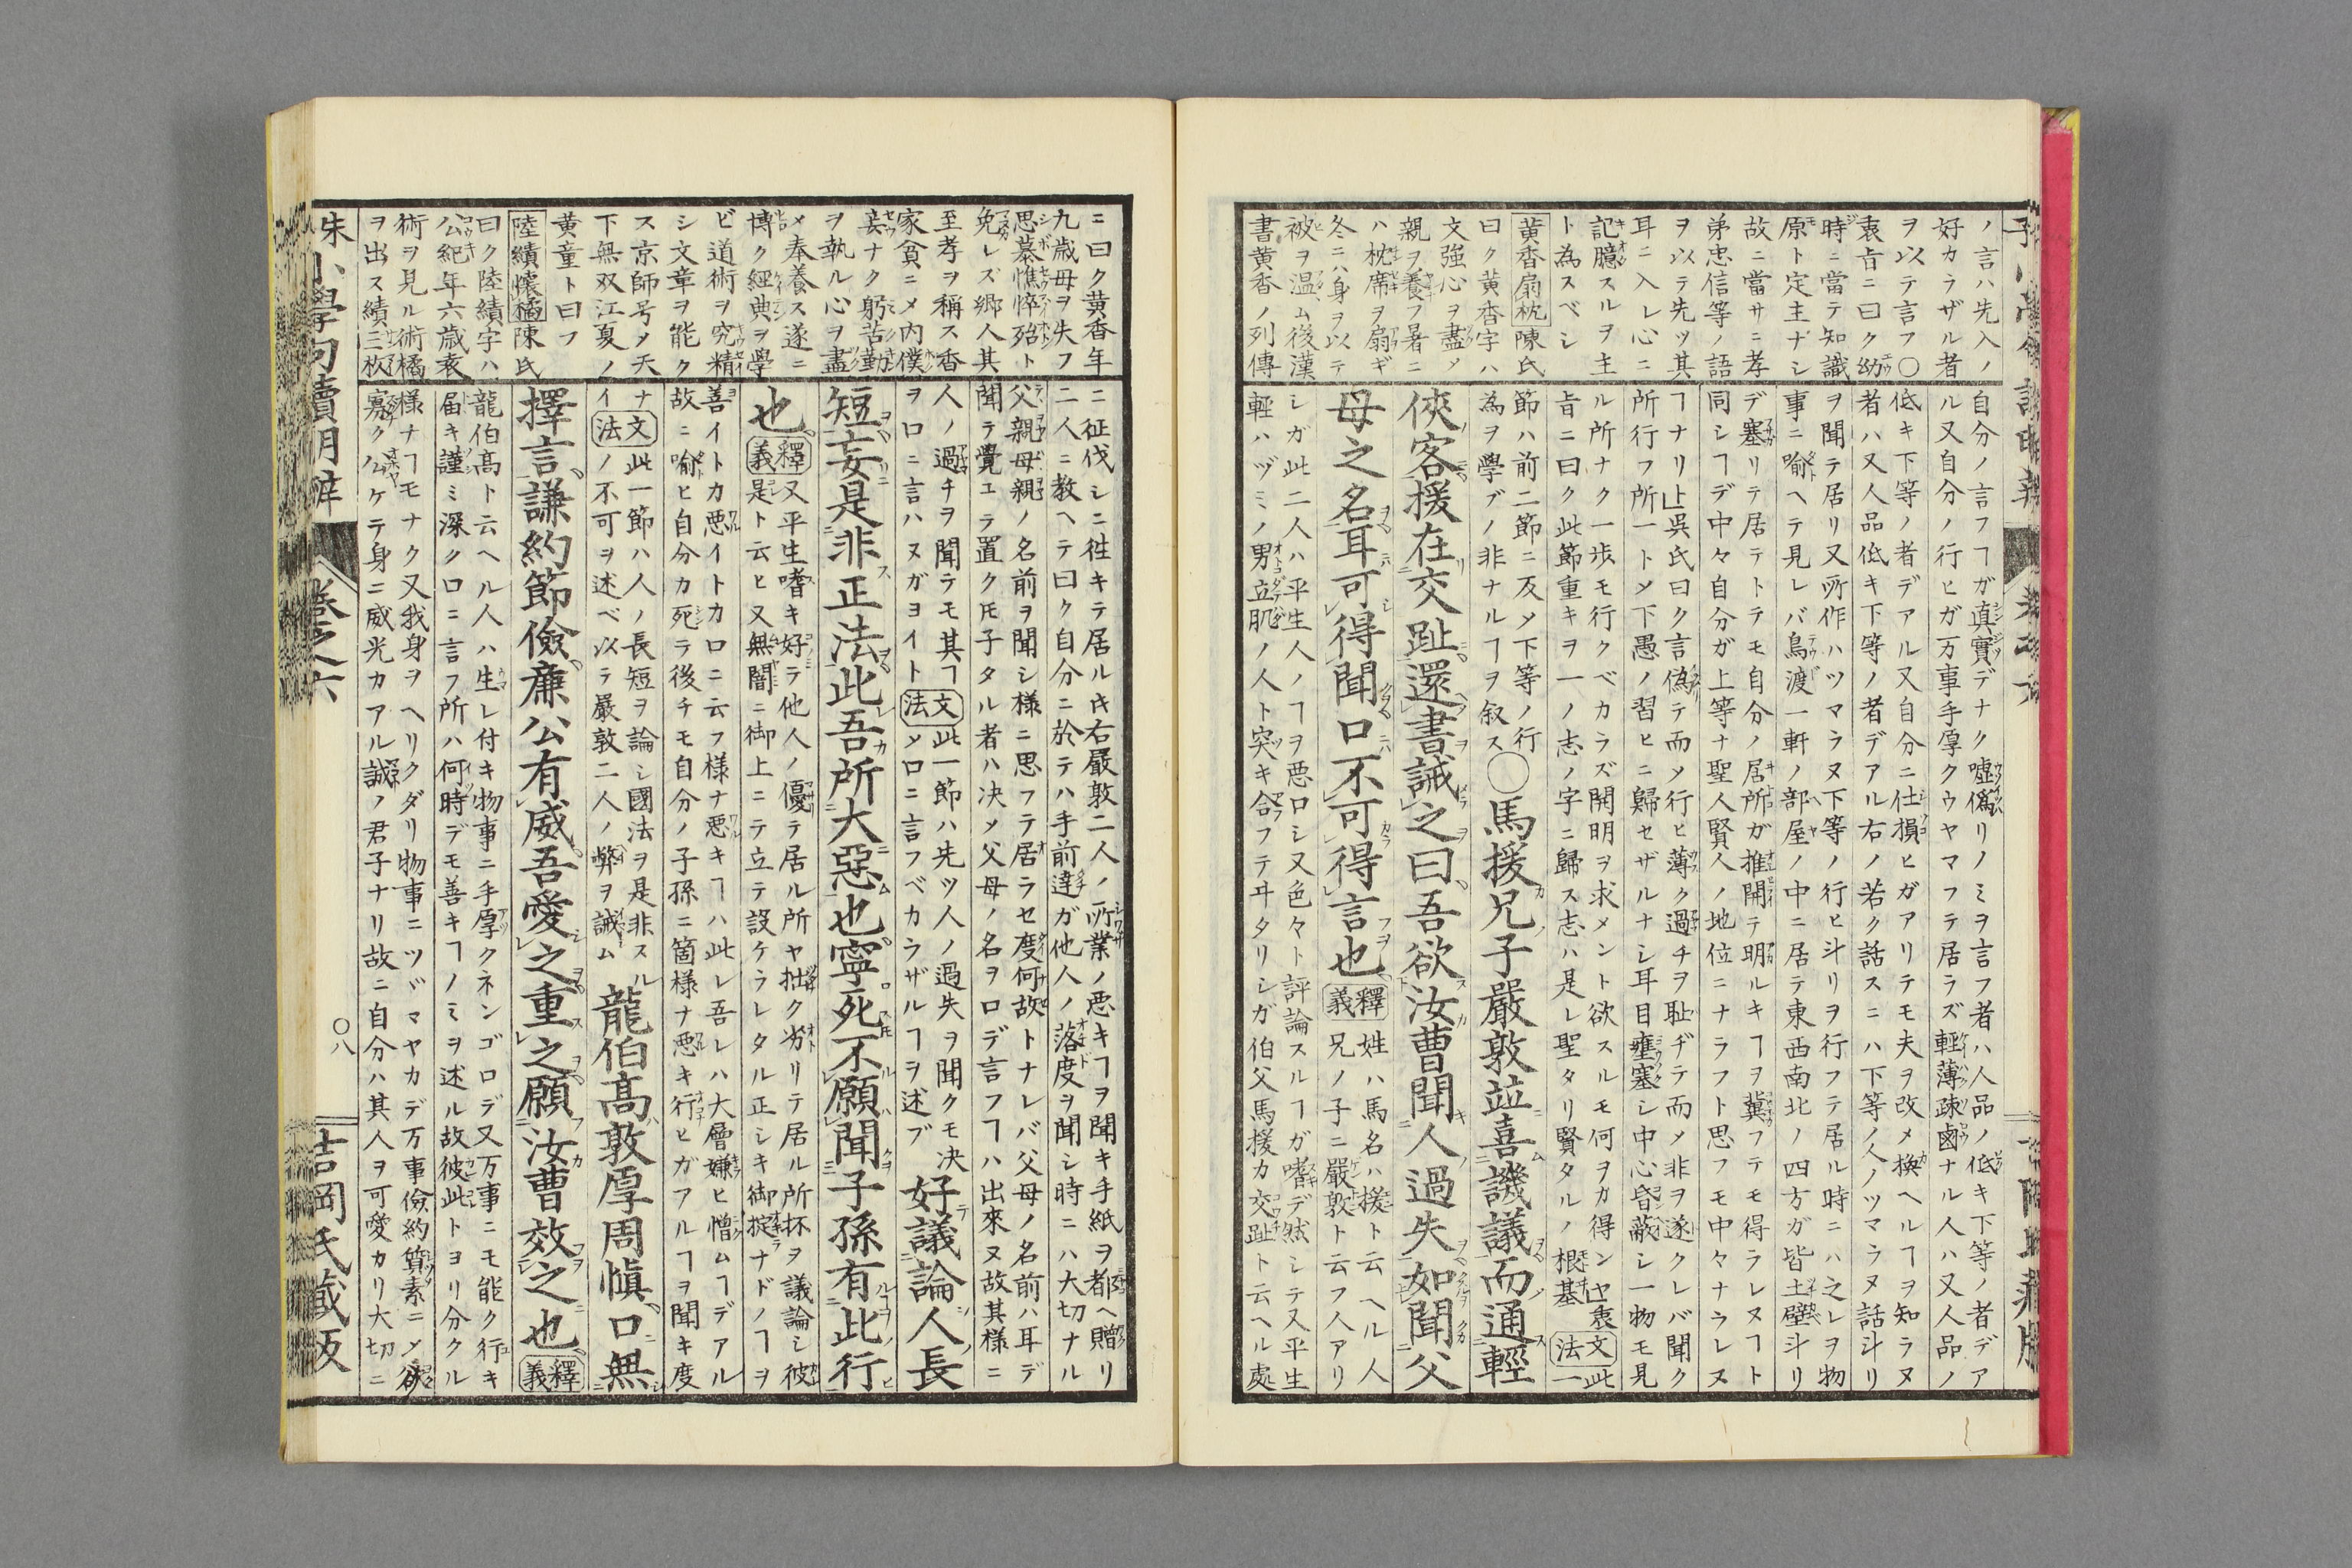 ノ言ハ先入ノ
好カラザル者
ヲ以テ言フ○
袁㫖ニ曰ク幼
時ニ當テ知識
原ト定主ナシ
故ニ當サニ孝
弟忠信等ノ語
ヲ以テ先ツ其
耳ニ入レ心ニ
記臆スルヲ主
ト為スベシ
黄香扇枕陳氏
曰ク黄香字ハ
文強心ヲ盡メ
親ヲ養フ暑ニ
ハ枕席ヲ扇ギ
冬ニハ身ヲ以テ
被ヲ温ム後漢
書黄香ノ列傳
自分ノ言フヿガ真實デナク嘘僞リノミヲ言フ者ハ人品ノ低キ下等ノ者デア
ル又自分ノ行ヒガ万事手厚クウヤマフテ居ラズ輕薄疎鹵ナル人ハ又人品ノ
低キ下等ノ者デアル又自分ニ仕損ヒガアリテモ夫ヲ改メ換ヘルヿヲ知ラヌ
者ハ又人品低キ下等ノ者デアル右ノ若ク話スニハ下等ノ人ノツマラヌ話斗リ
ヲ聞テ居リ又所作ハツマラヌ下等ノ行ヒ斗リヲ行フテ居ル時ニハ之レヲ物
事ニ喻ヘテ見レバ鳥渡一軒ノ部屋ノ中ニ居テ東西南北ノ四方ガ皆土壁斗リ
デ塞リテ居テトテモ自分ノ居所ガ推開テ明ルキヿヲ冀フテモ得ラレヌヿト
同シヿデ中々自分ガ上等ナ聖人賢人ノ地位ニナラフト思フモ中々ナラレヌ
ヿナリ𠀋吳氏曰ク言偽テ而メ行ヒ薄ク過チヲ耻ヂテ而メ非ヲ遂クレバ聞ク
所行フ所一トメ下愚ノ習ヒニ歸セザルナシ耳目壅塞シ中心昏蔽シ一物モ見
ル所ナク一歩モ行クベカラズ開明ヲ求メント欲スルモ何ヲカ得ンヤ袁
㫖ニ曰ク此節重キヲ一ノ志ノ字ニ歸ス志ハ是レ聖タリ賢タルノ根基文法此一
節ハ前二節ニ反メ下等ノ行
為ヲ學ブノ非ナルヿヲ叙ス○馬援兄子嚴敦並喜譏議而通輕
俠客援在交趾還書誡之曰吾欲汝曹聞人過失如聞父
母之名耳可得聞口不可得言也釋義姓ハ馬名ハ援ト云ヘル人
兄ノ子ニ嚴敦ト云フ人アリ
シガ此二人ハ平生人ノヿヲ悪口シ又色々ト評論スルヿガ嗜デ然シテ又平生
輕ハヅミノ男立肌ノ人ト突キ合フテヰタリシガ伯父馬援カ交趾ト云ヘル處
ニ曰ク黄香年
九歳母ヲ失フ
思慕憔悴殆ト
免レズ郷人其
至孝ヲ稱ス香
家貧ニメ内僕
妾ナク躬苦勤
ヲ執ル心ヲ盡
メ奉養ス遂ニ
博ク經典ヲ學
ビ道術ヲ究精
シ文章ヲ能ク
ス京師号メ天
下無双江夏ノ
黄童ト曰フ
陸績懷橘陳氏
曰ク陸績字ハ
公紀年六歳袁
術ヲ見ル術橘
ヲ出ス績三枚
ニ征伐シニ徃キテ居ル𪜈右嚴敦二人ノ所業ノ悪キヿヲ聞キ手紙ヲ都ヘ贈リ
二人ニ教ヘテ曰ク自分ニ於テハ手前達ガ他人ノ落度ヲ聞シ時ニハ大切ナル
父親母親ノ名前ヲ聞シ様ニ思フテ居ラセ度何故トナレバ父母ノ名前ハ耳デ
聞テ覺エテ置ク𪜈子タル者ハ决メ父母ノ名ヲ口デ言フヿハ出來ヌ故其様ニ
人ノ過チヲ聞テモ其ヿ
ヲ口ニ言ハヌガヨイト文法此一節ハ先ツ人ノ過失ヲ聞クモ决
メ口ニ言フベカラザルヿヲ述ブ好議論人長
短妄是非正法此吾所大惡也寧死不願聞子孫有此行
也釋義又平生嗜キ好テ他人ノ優テ居ル所ヤ拙ク劣リテ居ル所抔ヲ議論シ彼
是ト云ヒ又無闇ニ御上ニテ立テ設ケラレタル正シキ御掟ナドノヿヲ
善イトカ悪イトカ口ニ云フ様ナ悪キヿハ此レ吾レハ大層嫌ヒ憎ムヿデアル
故ニ喻ヒ自分カ死テ後チモ自分ノ子孫ニ箇様ナ悪キ行ヒガアルヿヲ聞キ度
ナイ文法此一節ハ人ノ長短ヲ論シ國法ヲ是非スル
ノ不可ヲ述ベ以テ嚴敦二人ノ弊ヲ誡ム龍伯高敦厚周愼口無
擇言謙約節儉廉公有威吾愛之重之願汝曹效之也釋義
龍伯高ト云ヘル人ハ生レ付キ物事ニ手厚クネンゴロデ又万事ニモ能ク行キ
届キ謹ミ深ク口ニ言フ所ハ何時デモ善キヿノミヲ述ル故彼此トヨリ分クル
様ナヿモナク又我身ヲヘリクダリ物事ニツヾマヤカデ万事儉約質素ニメ欲
寡ク公ケテ身ニ威光カアル誠ノ君子ナリ故ニ自分ハ其人ヲ可愛カリ大切ニ
朱小學句讀明辨 卷之六 ○八 吉岡氏藏版